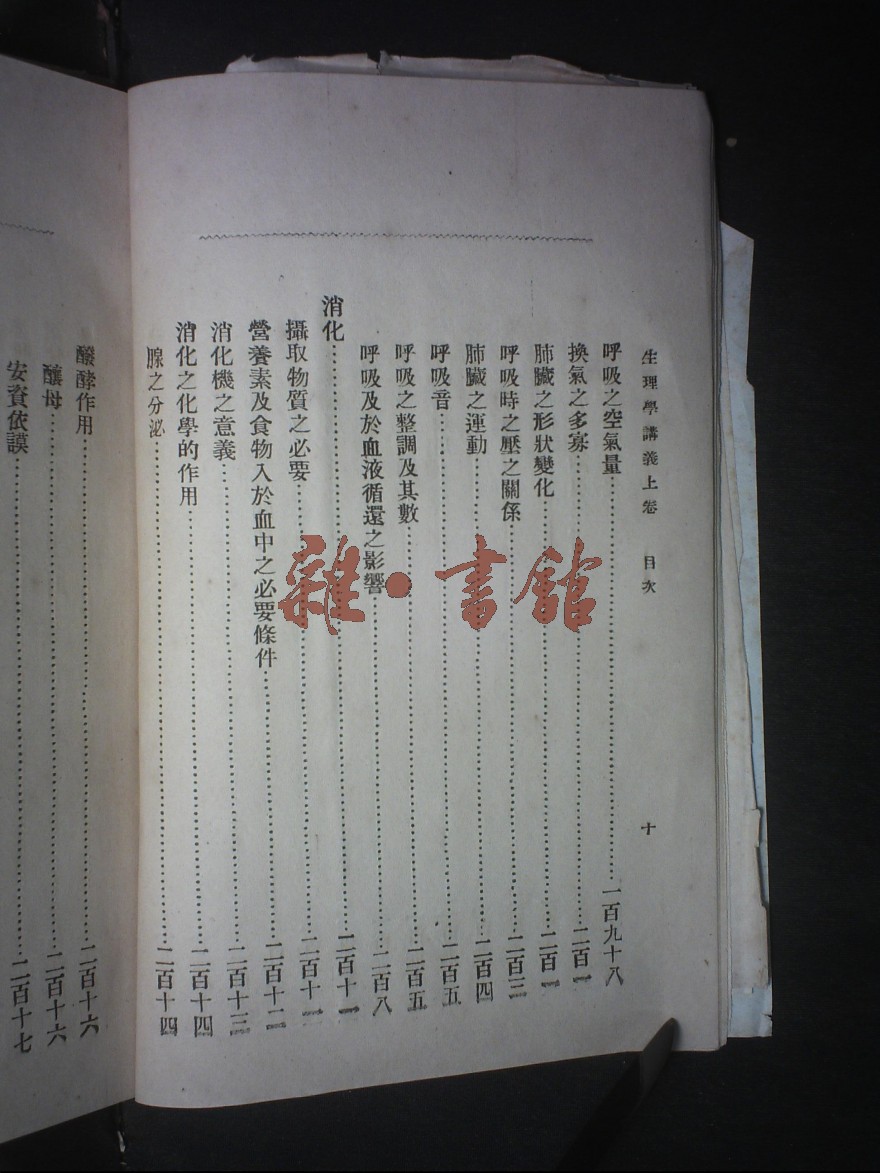 生理學講義上卷 目次 十
呼吸之空氣量……一百九十八
換氣之多寡……二百一
肺臟之形狀變化……二百一
呼吸時之壓之關係……二百三
肺臟之運動……二百四
呼吸音……二百五
呼吸之整調及其數……二百五
呼吸及於血液循還之影響……二百八
消化……二百十一
攝取物質之必要……二百十一
營養素及食物入於血中之必要條件……二百十二
消化機之意義……二百十三
消化之化學的作用……二百十四
腺之分泌……二百十四
醱酵作用……二百十六
釀母……二百十六
安資依謨……二百十七
雜·書館